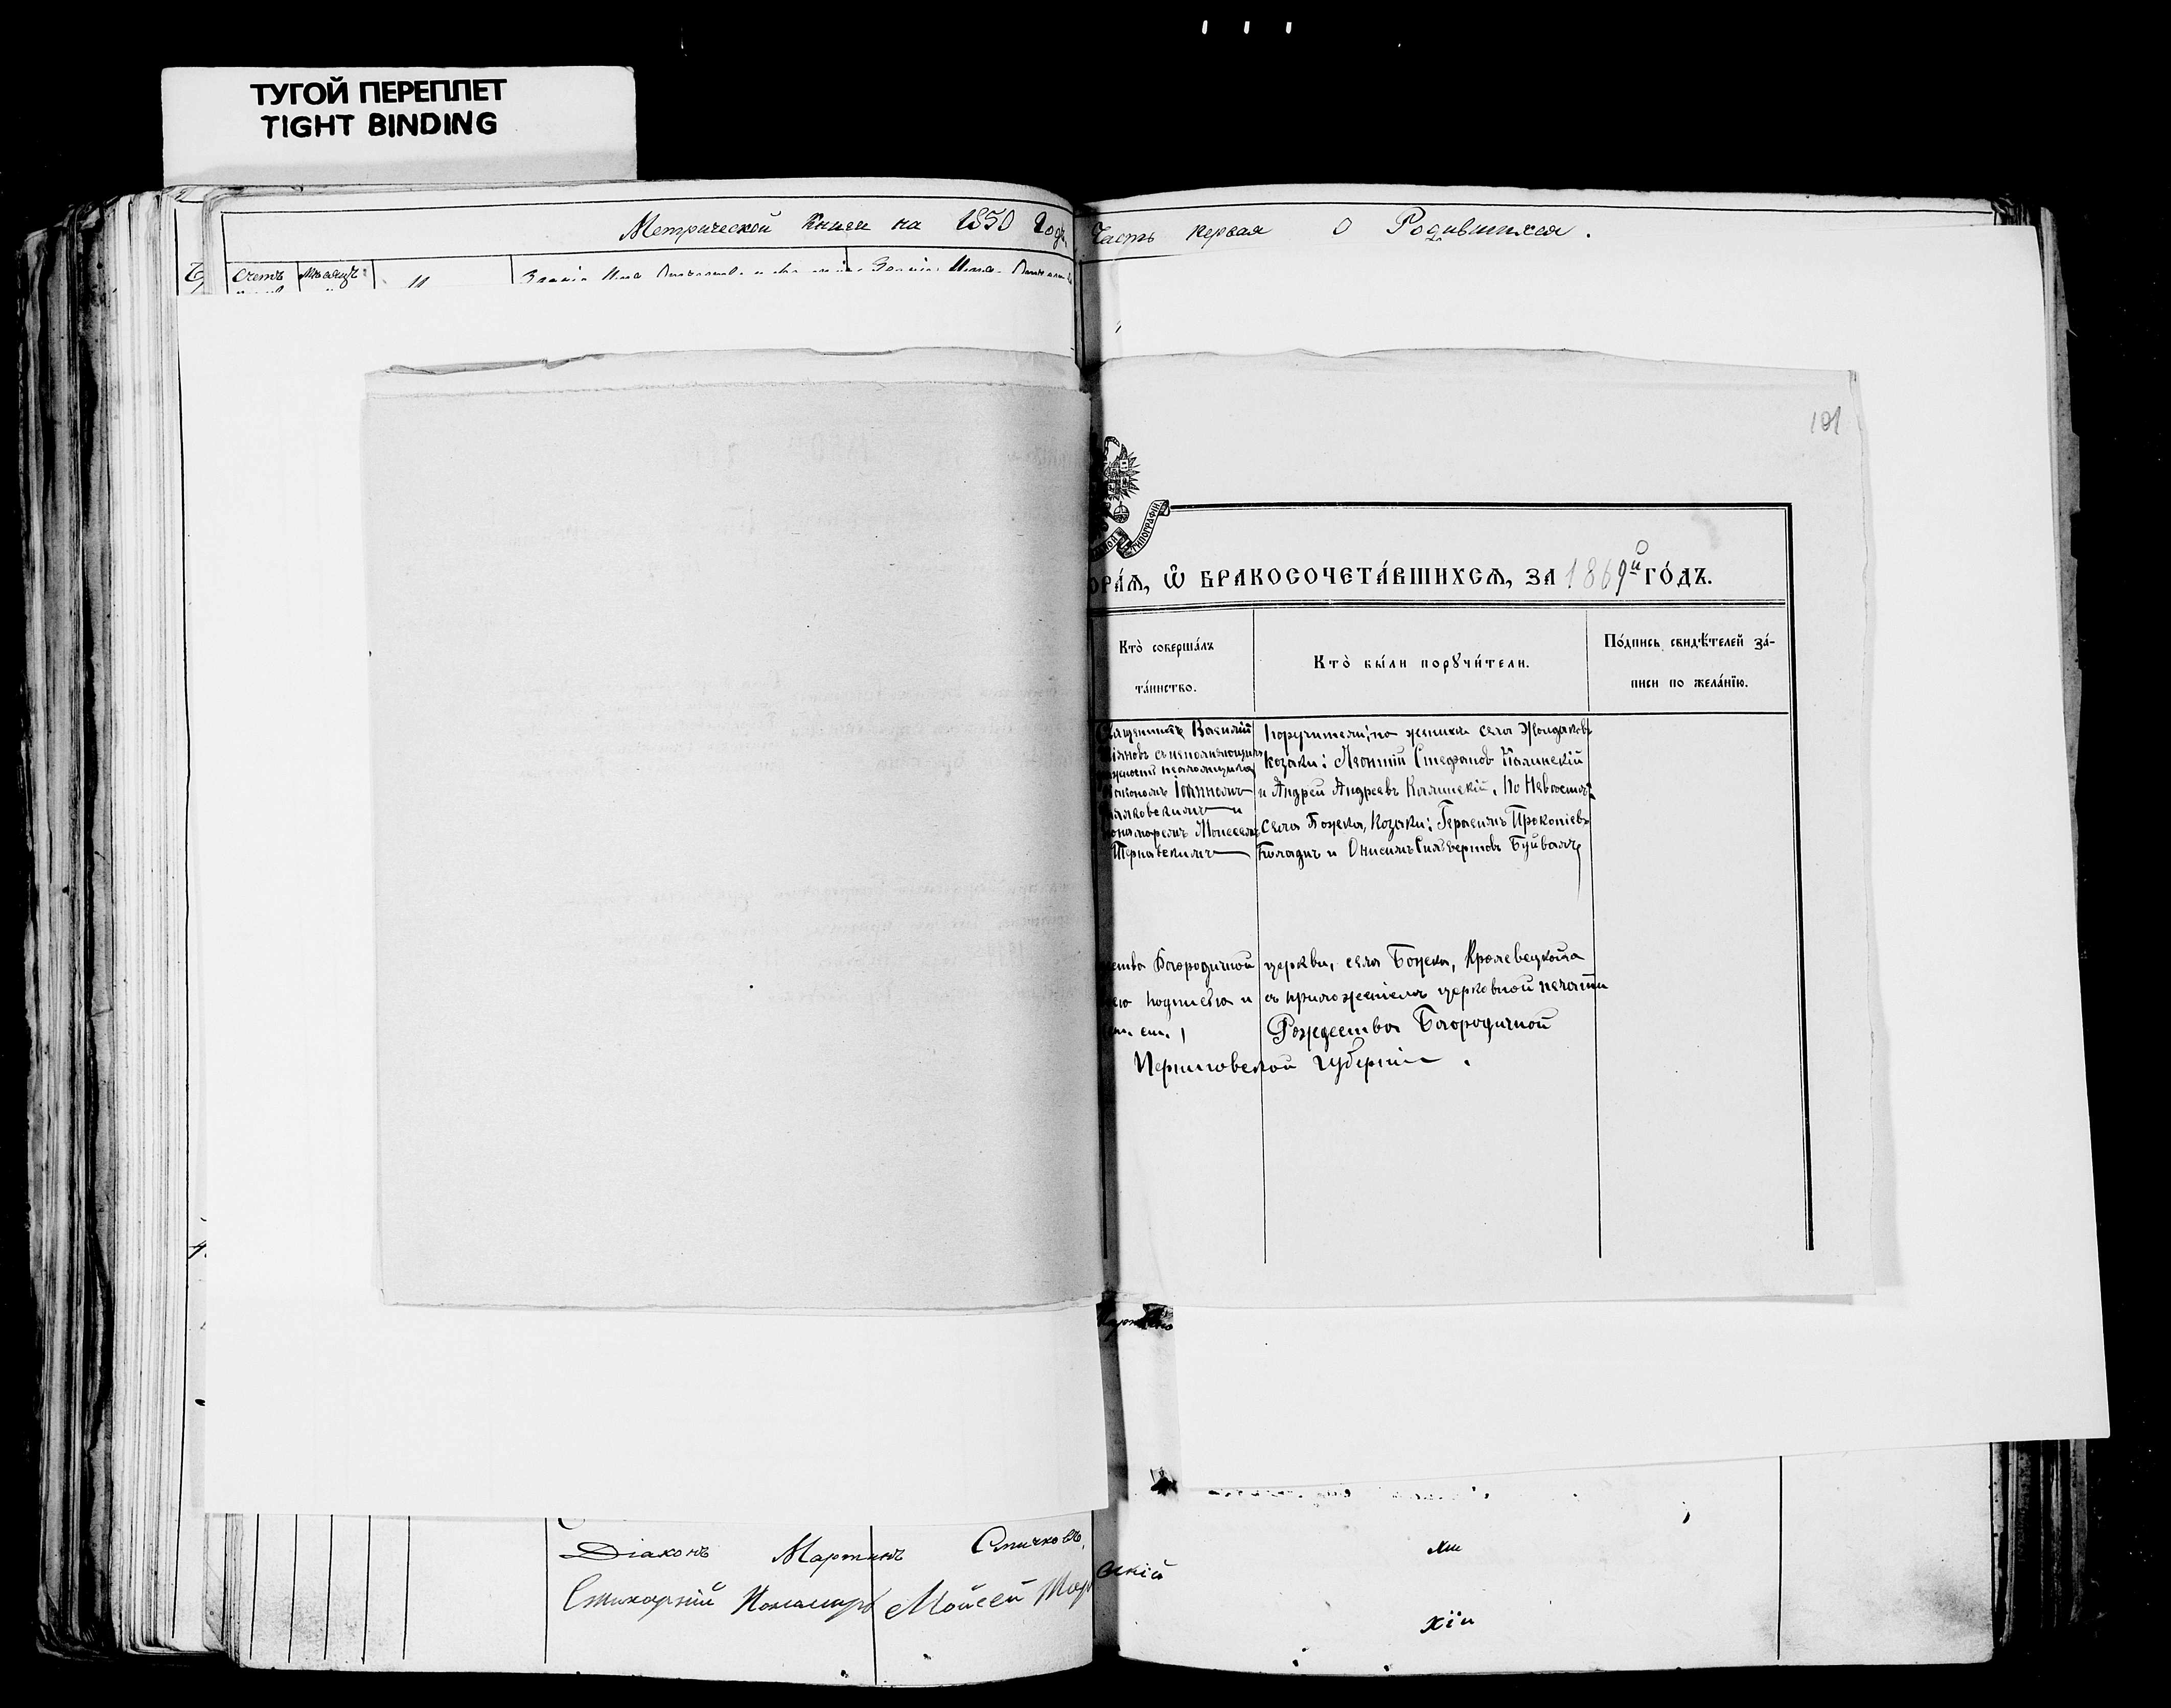 ТУГОЙ ПЕРЕПЛЕТ
TIGHT BINDING
Метрической Книги на 1850 Годъ, Часть первая О Родившихся.
Счетъ Мѣсяцъ
101
ТИПОГРАФІИ
ОРА́Я, Ѽ БРАКОСОЧЕТА́ВШИХСѦ, ЗА 1869й ГО́ДЪ.
Кто̀ соверша́лъ
та́инство.
Кто̀ бы́ли порꙋчи́тели.
По́дпись свидѣ́телей за́-
писи по жела́нїю.
Священникъ Василій
съ исполняющимъ
Іоанномъ
и
Моисеемъ
Тернавскимъ
Поручители: по женихѣ села Жолдаковъ
козаки: Леонтій Стефановъ Калинскій
и Андрей Андреевъ Калинскій, По Невѣстѣ:
села Божка, Козаки: Герасимъ Прокопіевъ
и Онисимъ Буйвалъ
ства Богородичной церкви, села Божка, Кролевецкаго
ею подписью и съ приложеніемъ церковной печати
Рождество Богородичной
Черниговской Губерніи.
Діаконъ Мартинъ Спичковъ,
Стихарный Пономарь Моисей Тер
скій
хіи